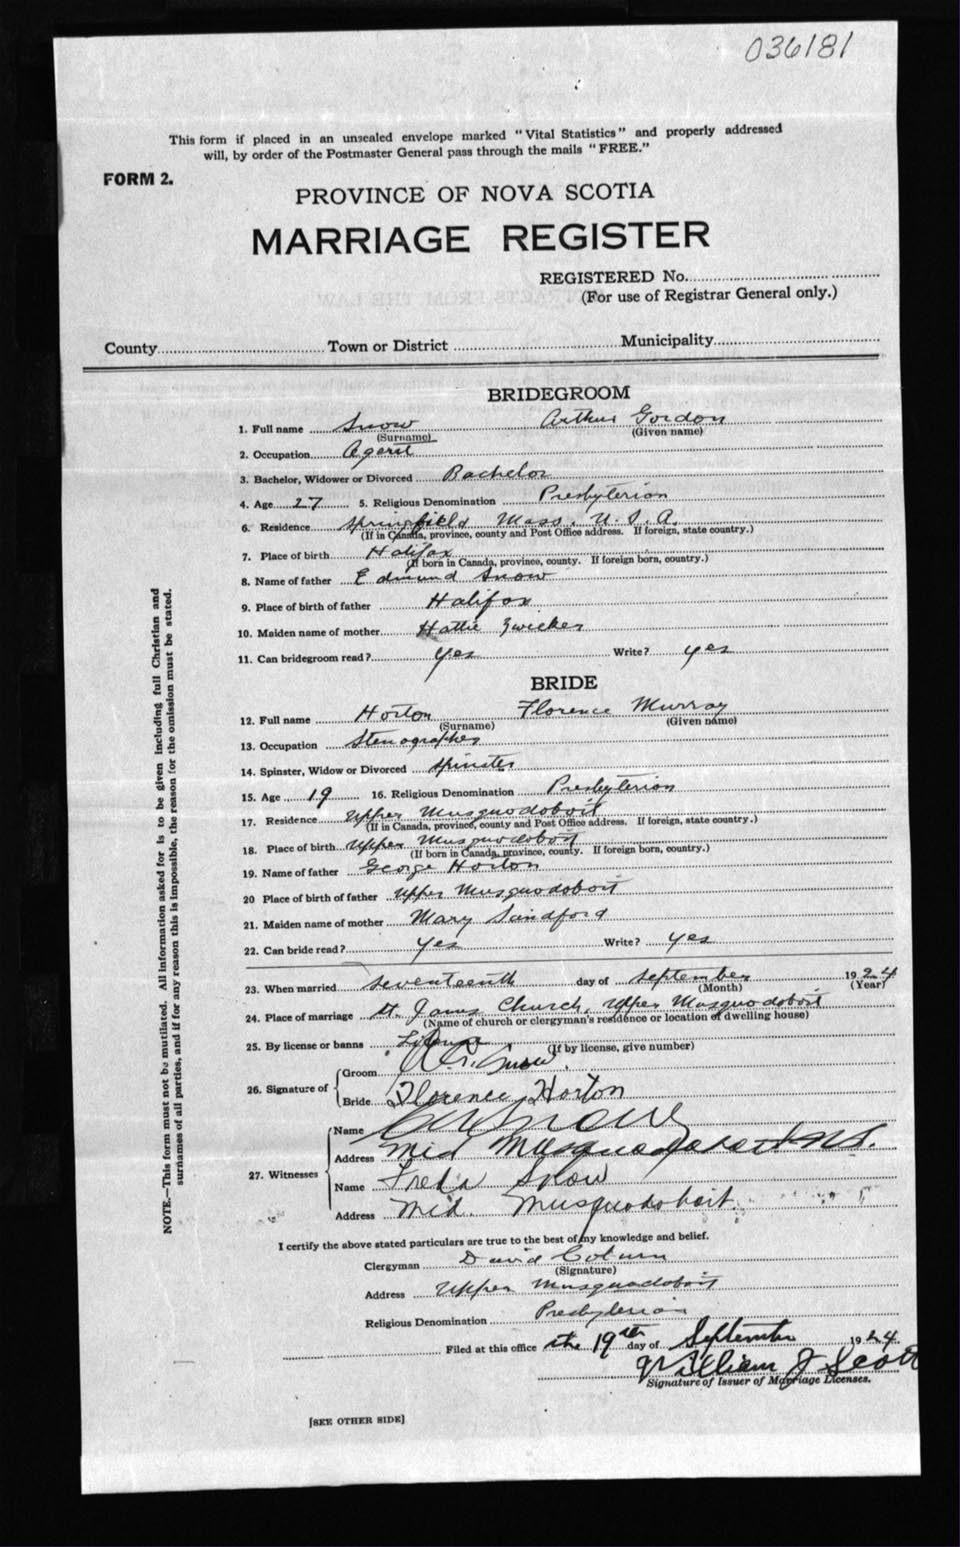 036181
This form if placed in an unsealed envelope marked "Vital Statistics" and properly addressed
will, by order of the Postmaster General pass through the mails "FREE."
FORM 2.
PROVINCE OF NOVA SCOTIA
MARRIAGE REGISTER
REGISTERED No.
(For use of Registrar General only.)
County Town or District Municipality
BRIDEGROOM
1. Full name Snow Arthur Gordon
(Surname) (Given name)
2. Occupation Agent
3. Bachelor, Widower or Divorced Bachelor
4. Age 27 5. Religious Denomination Presbyterian
6. Residence Springfield Mass. U.S.A.
(If in Canada, province, county and Post Office address. If foreign, state country.)
7. Place of birth Halifax
(If born in Canada, province, county. If foreign born, country.)
8. Name of father Edmund Snow
9. Place of birth of father Halifax
10. Maiden name of mother Hattie Zwicker
11. Can bridegroom read? Yes Write? yes
BRIDE
12. Full name Horton Florence Murray
(Surname) (Given name)
13. Occupation Stenographer
14. Spinster, Widow or Divorced Spinster
15. Age 19 16. Religious Denomination Presbyterian
17. Residence Upper Musquodoboit
(If in Canada, province, county and Post Office address. If foreign, state country.)
18. Place of birth Upper Musquodoboit
(If born in Canada, province, county. If foreign born, country.)
19. Name of father George Horton
20 Place of birth of father Upper Musquodoboit
21. Maiden name of mother Mary Sandford
22. Can bride read? Yes Write? Yes
23. When married Seventeenth day of September 1924
(Month) (Year)
24. Place of marriage St. James Church, Upper Musquodoboit
(Name of church or clergyman's residence or location of dwelling house)
25. By license or banns License
(If by license, give number)
26. Signature of
Groom Snow
Bride Florence Horton
27. Witnesses
Name Snow
Address Mid Musquodoboit N.S.
Name Freda Snow
Address Mid. Musquodoboit
I certify the above stated particulars are true to the best of my knowledge and belief.
Clergyman David Coburn
(Signature)
Address Upper Musquodoboit
Religious Denomination Presbyterian
Filed at this office the 19th day of September 1924
William J Scott
Signature of Issuer of Marriage Licenses.
[SEE OTHER SIDE]
NOTE.—This form must not be mutilated. All information asked for is to be given including full Christian and
surnames of all parties, and if for any reason this is impossible, the reason for the omission must be stated.